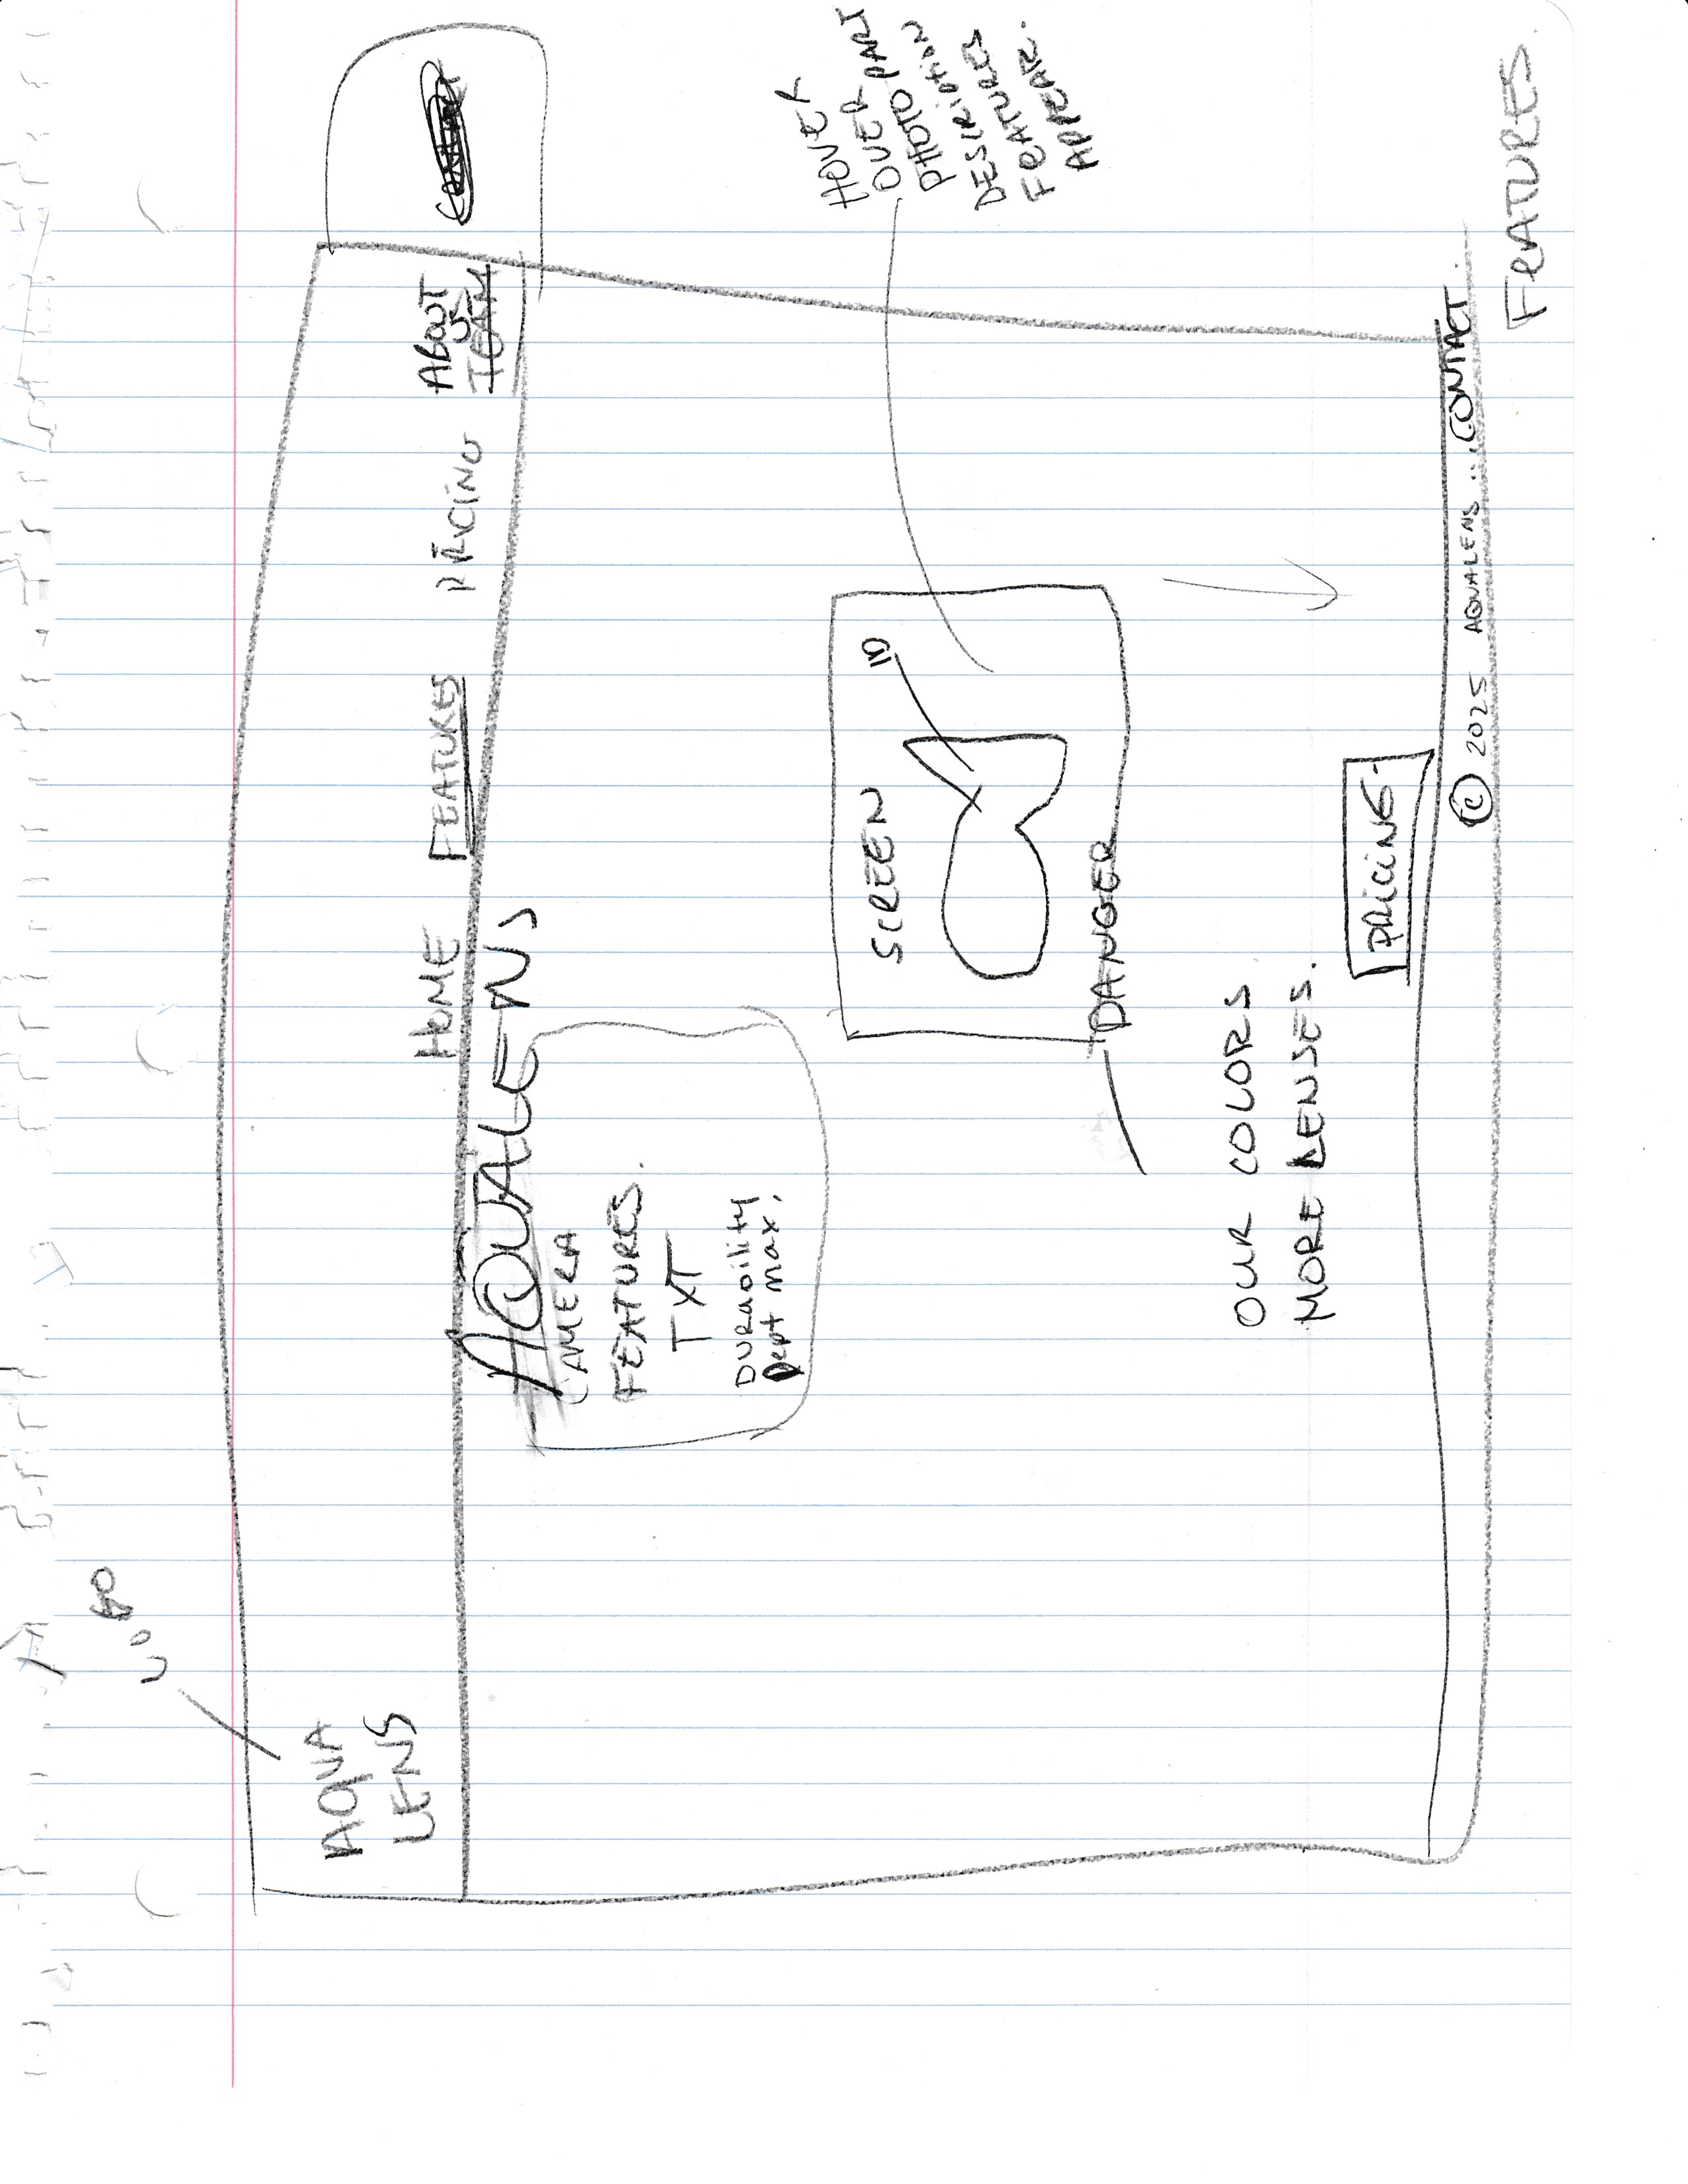 LOGO
AQUA
LENS
HOME FEATURES PRICING ABOUT
US
TEAM
AQUALENS
CAMERA
FEATURES.
TXT
DURability
Dept max.
SCREEN
ID
DANGER
HOVER
OVER
PHOTO PART
DESCRiption
FeATURES
APPEAR.
OUR COLORS
MORE LENSES.
PRiCiNG
© 2025 AQUALENS ... CONTACT.
FeATURES.